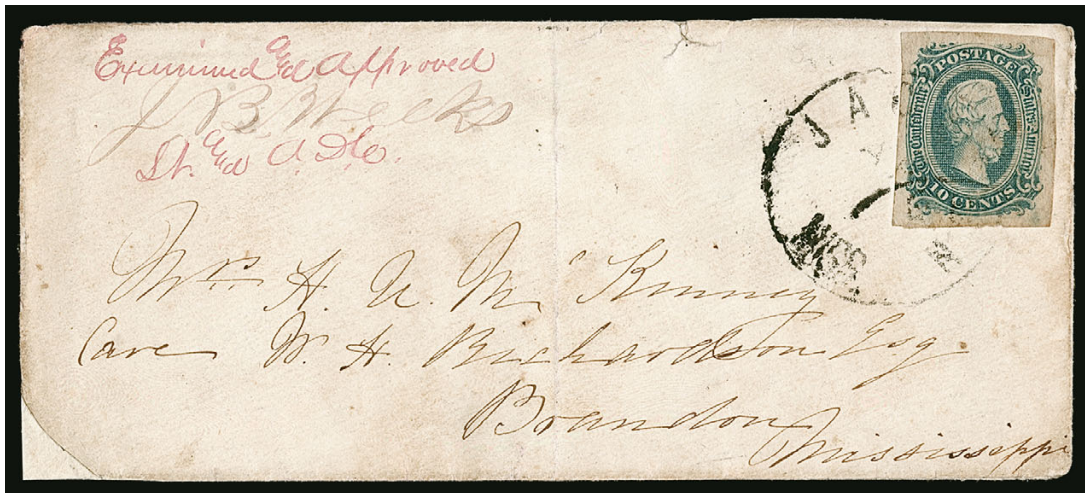 Examined and Approved
J B Weeks
Lt. and A. D. C.
POSTAGE
The Confederate States of America
10 CENTS
JAC N
MISS.
Mrs H. N. McKinney
Care W. H. Richardson Esq
Brandon
Mississippi